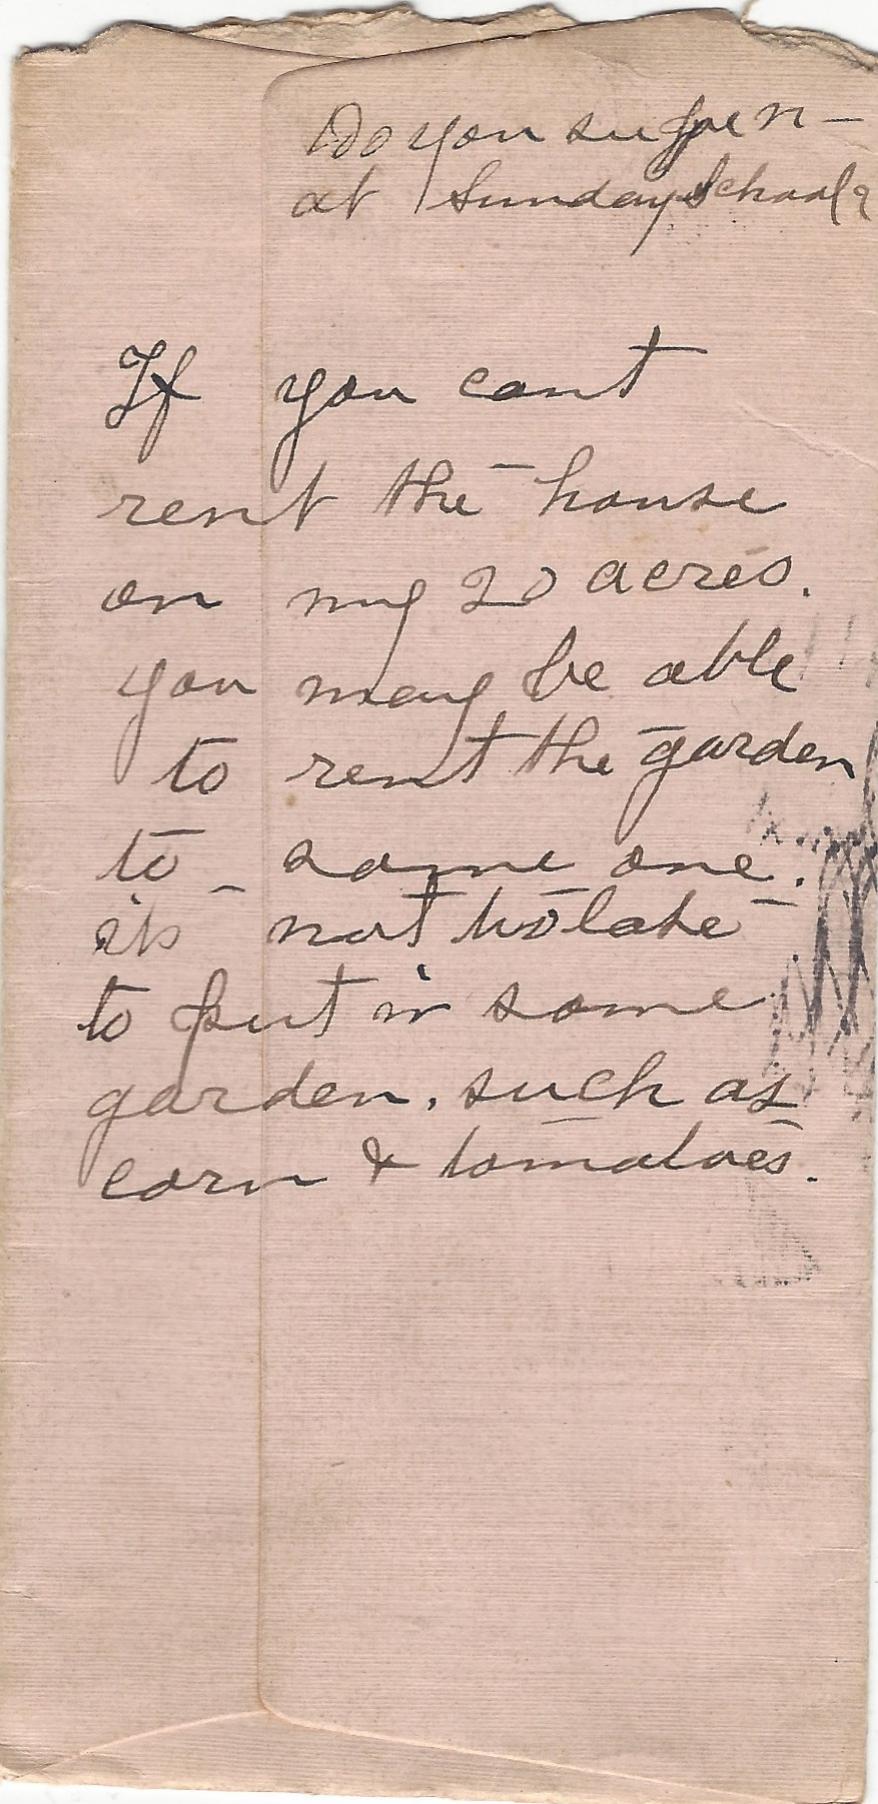 Do you su
at Sunday School?
If you cant
rent the house
on my 20 acres.
you may be able
to rent the garden
to some one.
its not to late
to put in some
garden. such as
corn & tomatoes.